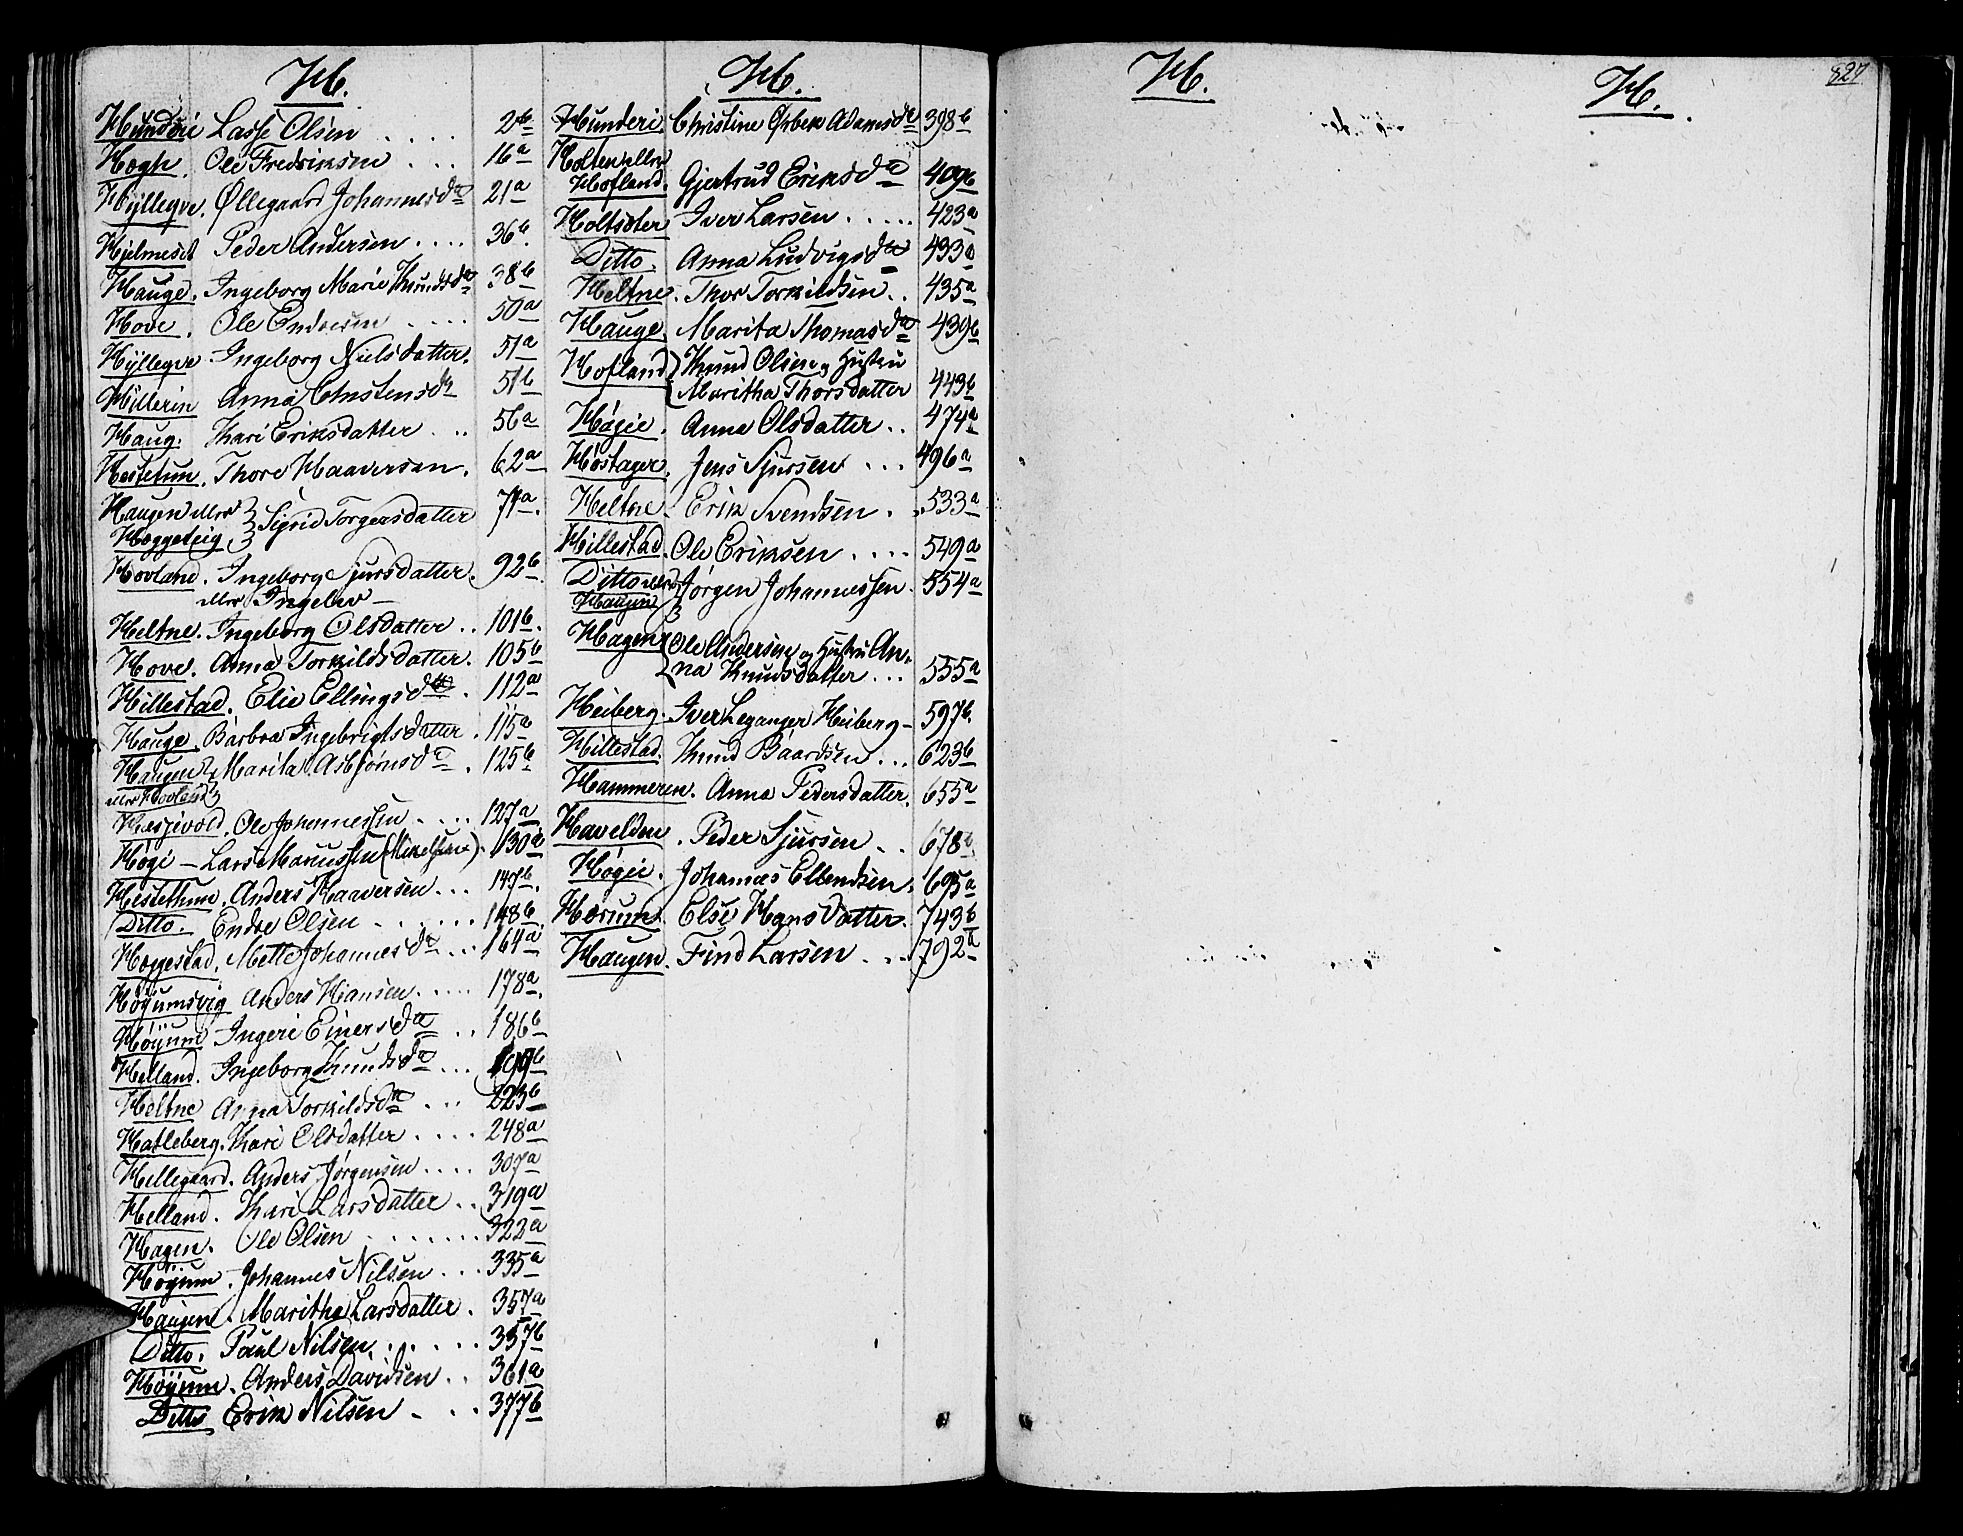 H.
Hunderi Lasse Olsen . . . . 2b
Høgh. Ole Fredriksen . . . 16a
Hyllegve. Øllegaard Johannesda 21a
Hjelmeset Peder Andersen . . . . 36b.
Hauge. Ingeborg Marie Knudsda 38b
Hove. Ole Endresen . . . . 50a
Hyllegve. Ingeborg Nielsdatter. 51a
Hillerin Anna Christensda 51b
Haug. Kari Eriksdatter . . . 56a
Hestetum. Thore Haaversen. 62a
Haugen eller } Sigrid Torgersdatter 71a.
Høggeteig }
Hovland. Ingeborg Sjursdatter. 92b.
eller Ingelev —
Heltne. Ingeborg Olsdatter . . 101b.
Hove. Anna Torkildsdatter. 105b
Hillestad. Elie Ellingsda . 112a
Hauge. Barbra Ingebrigtsdatter . 115a
Haugen } Marita Asbjørnsda . 125b
eller Hovland }
Hæsjevold. Ole Johannessen . . . . 127a
Høgi — Lars Mariussen (Mikelsen). 130a
Hestethun. Anders Haaversen . . . 147b.
Ditto. Endre Olsen . . . . . . . 148b
Heggestad. Mette Johannesda . . . 164a
Høyumsvig Anders Hansen . . . . . 178a.
Høyum Ingeri Einersda . . 186b
Helland. Ingeborg Knudsda . . . 199b
Heltne Anna Torkildsda . . . 223b
Hatleberg. Kari Olsdatter . . . . 248a
Hellegaard. Anders Jørgensen . . . . 307a
Helland. Kari Larsdatter . . 319a
Hagen. Ole Olsen . . . . . . . 322a
Høyum. Johannes Nilsen . . . 335a
Haugen. Maritha Larsdatter . 357a
Ditto. Paul Nilsen. . . . . . 357b
Høyum. Anders Davidsen . . 361a
Ditto Erik Nilsen - . . 377b
H.
Hunderi. Christine Ørbek Adamsda 398b
Holten eller
Hofland. Gjertrud Eriksda 409b
Holtsæter Iver Larsen . . . . . 423a
Ditto. Anna Ludvigsda 433a
Heltne. Thor Torkildsen . . 435a
Hauge. Marita Thomasda 439b
Hofland { Knud Olsen og Hustru
{ Maritha Thorsdatter 443b
Høgie. Anna Olsdatter . . 474a
Høstager. Jens Sjursen . . . 496a
Heltne. Erik Svendsen . . 533a
Hillestad. Ole Eriksen . . . . 549a
Ditto eller } Jørgen Johannessen. 554a
Haugen }
Hagen { Ole Andersen og Hustru An-
{ na Knudsdatter . . . 555a
Heiberg. Iver Leganger Heiberg — 597b.
Hillestad. Knud Baardsen . . . 623b
Hammeren. Anna Pedersdatter. 655a
Havelden. Peder Sjursen . . 678b
Høgie. Johannes Ellendsen. 695a
Hærum. Else Hansdatter. 743b
Haugen. Find Larsen . . . 792a
H.
H.
827